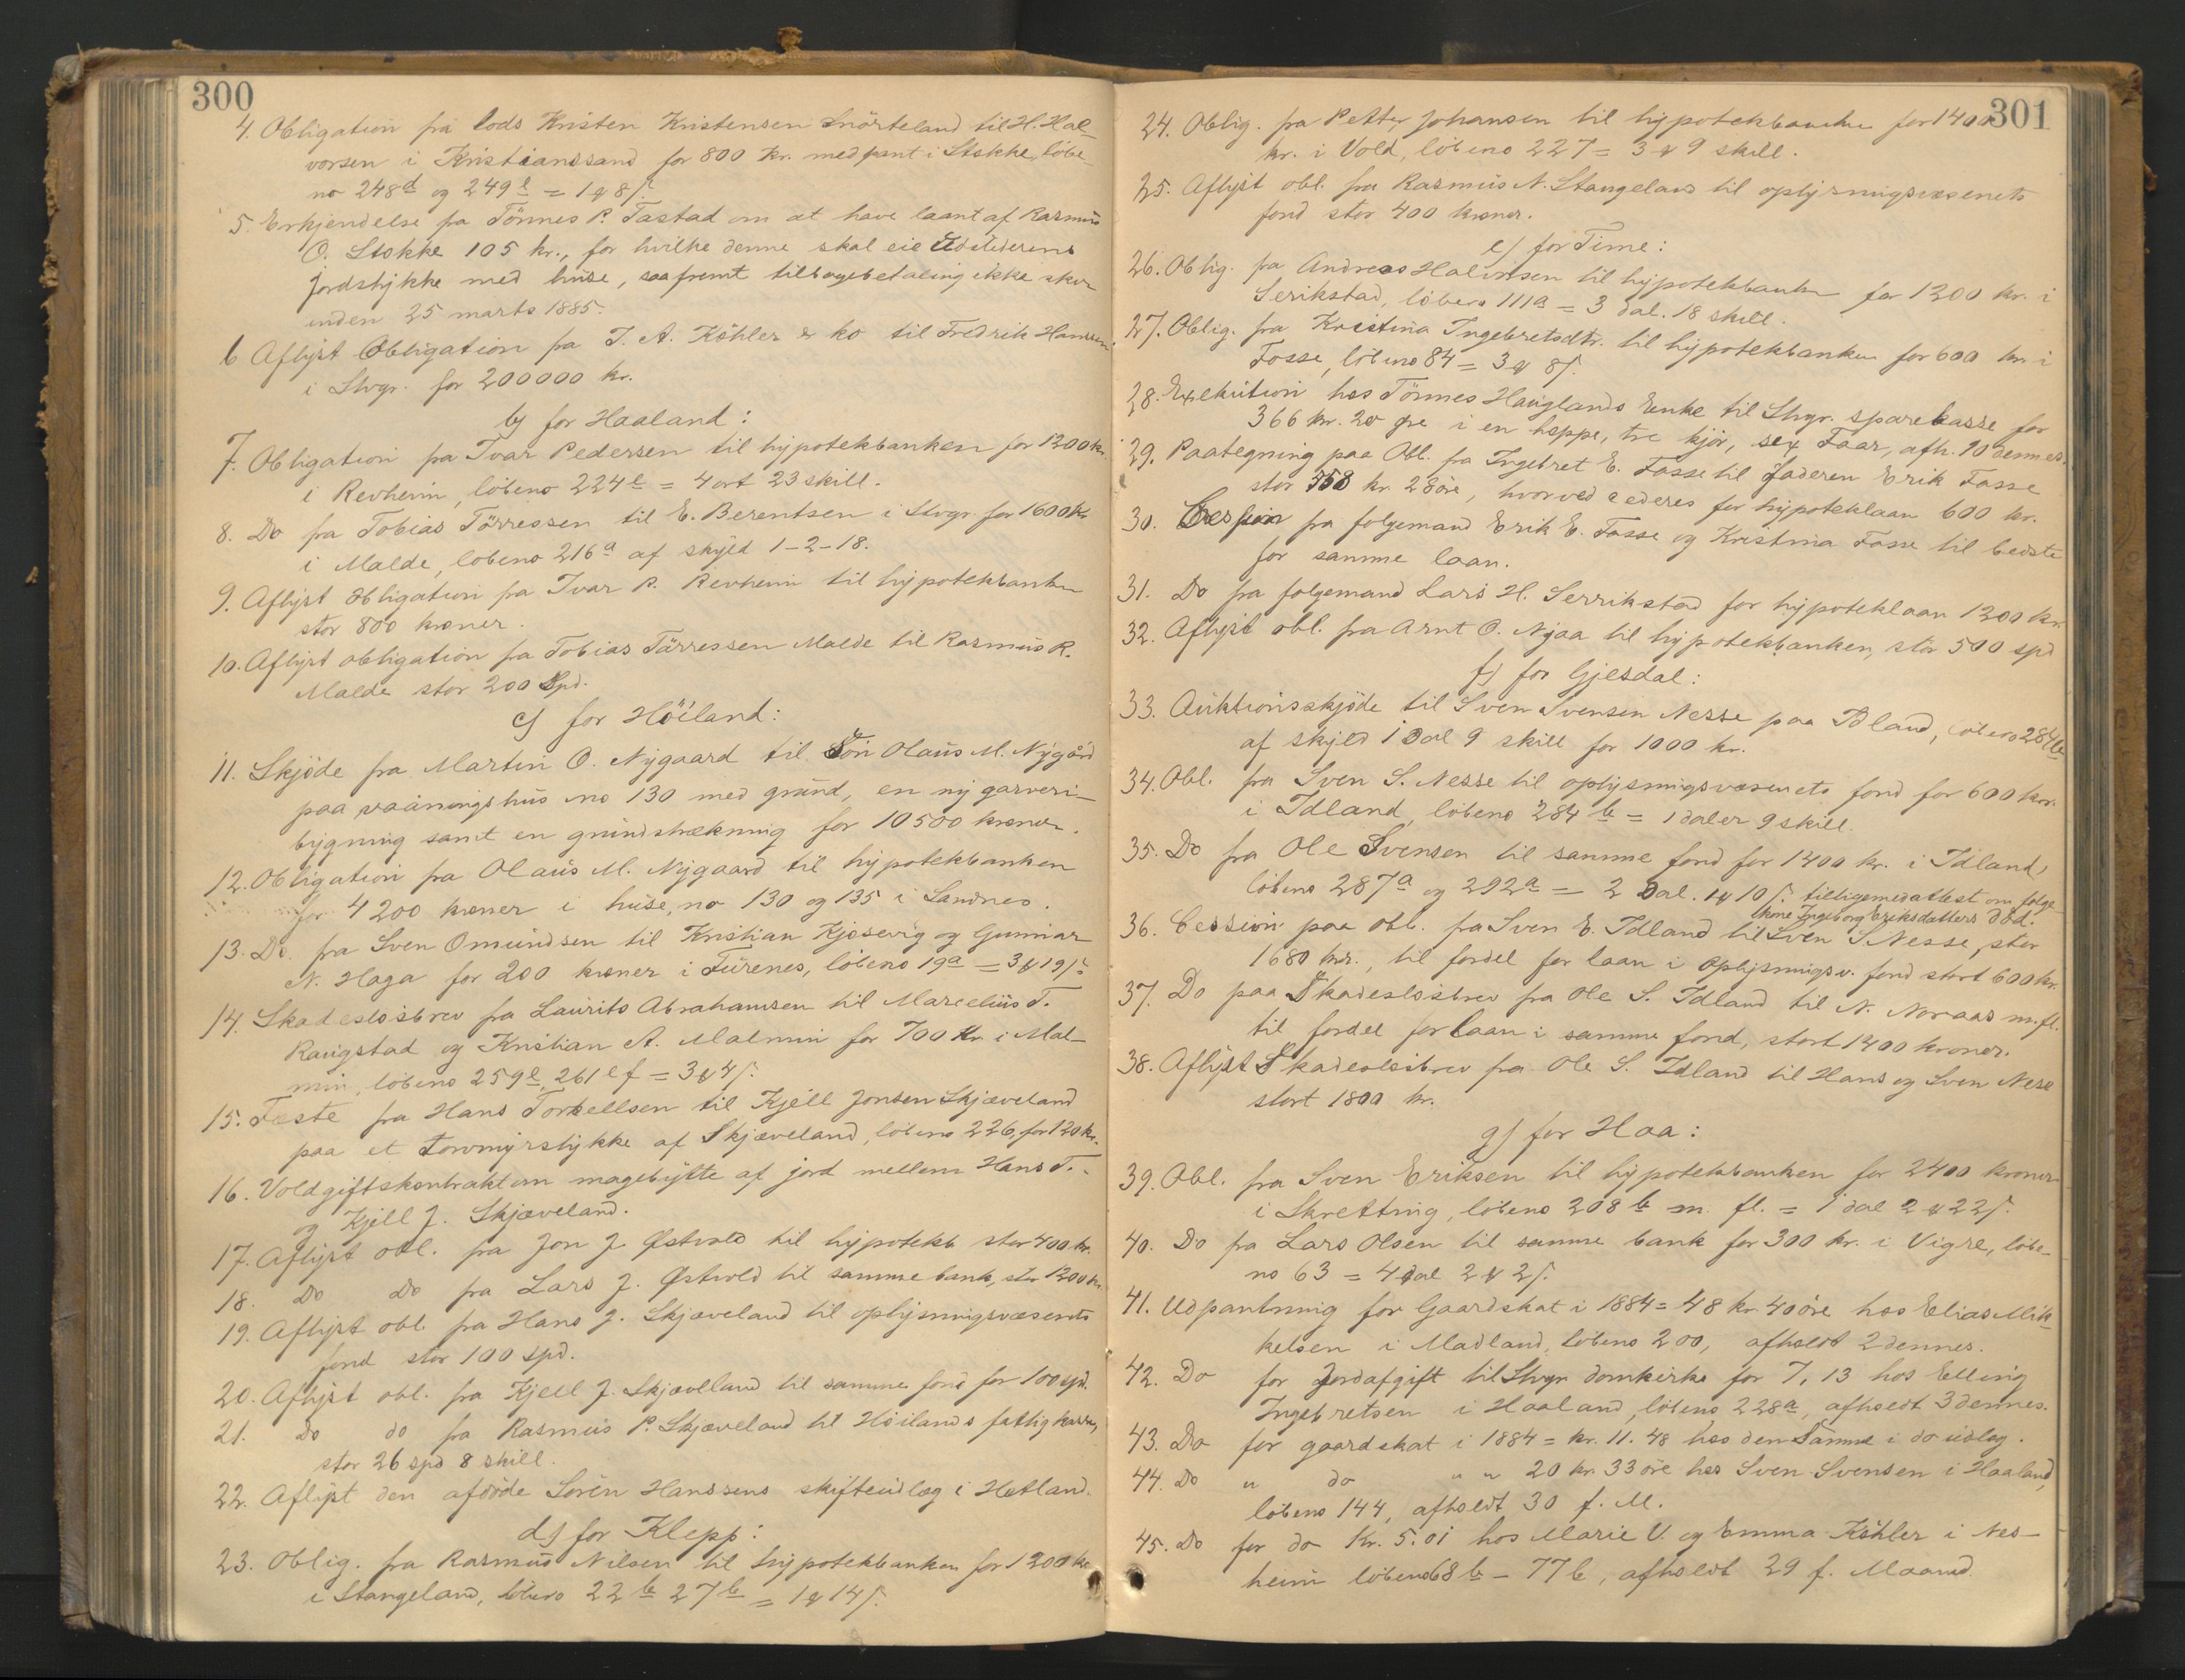 300
4. Obligation fra lods Kristen Kristensen Snörteland til H. Hal-
vorsen i Kristiansand for 800 kr. med pant i Stokke, löbe-
no 248d og 249e = 1 8 s.
5. Erkjendelse fra Tönnes P. Tastad om at have laant af Rasmus
O. Stokke 105 kr., for hvilke denne skal eie Udstederens
jordstykke med huse, saafremt tilbagebetaling ikke sker
inden 25 marts 1885.
6 Aflyst Obligation fra J. A. Köhler & ko til Fredrik Hansen
i Stvgr. for 200000 kr.
b) for Haaland:
7. Obligation fra Ivar Pedersen til hypotekbanken for 1200 kr.
i Revheim, löbeno 224e = 4 ort 23 skill.
8. Do fra Tobias Törressen til E. Berentsen i Stvgr. for 1600 kr
i Malde, löbeno 216a af skyld 1-2-18.
9. Aflyst obligation fra Ivar P. Revheim til hypotekbanken
stor 800 kroner.
10. Aflyst obligation fra Tobias Törressen Malde til Rasmus R.
Malde stor 200 Spd.
c) for Höiland:
11. Skjöde fra Martin O. Nygaard til Sön Olaus M. Nygård
paa vaaningshus no 130 med grund, en ny garveri-
bygning samt en grundstrækning for 10500 kroner.
12. Obligation fra Olaus M. Nygaard til hypotekbanken
for 4200 kroner i huse, no 130 og 135 i Sandnes.
13. Do. fra Sven Omundsen til Kristian Kjosevig og Gunnar
N. Haga for 200 kroner i Furenes, löbeno 19a = 3 19 s.
14. Skadeslösbrev fra Laurits Abrahamsen til Marcelius T.
Raugstad og Kristian A. Malmin for 700 kr i Mal-
min, löbeno 259e, 261e f = 3 4 s.
15. Fæste fra Hans Torkellsen til Kjell Jonsen Skjæveland
paa et tormyrstykke af Skjæveland, löbeno 226, for 120 kr.
16. Voldgiftskontrakt om magebytte af jord mellem Hans T.
og Kjell J. Skjæveland.
17. Aflyst obl. fra Jon J. Østvold til hypotekb. stor 400 kr.
18. Do Do fra Lars J. Østvold til samme bank, stor 1200 kr.
19. Aflyst obl. fra Hans J. Skjæveland til oplysningsvæsenets
fond stor 100 spd.
20. Aflyst obl. fra Kjell J. Skjævelland til samme fond for 100 spd.
21. Do do fra Rasmus P. Skjæveland til Höilands fattigkasse,
stor 26 spd 8 skill.
22. Aflyst den afdöde Sören Hanssens skifteudlæg i Hetland.
d) for Klepp:
23. Oblig. fra Rasmus Nilsen til hypotekbanken for 1200 kr
i Stangeland, löbeno 22b 27b = 1 14 s.
301
24. Oblig. fra Petter Johansen til hypotekbanken for 1400
kr. i Vold, löbeno 227 = 3 9 skill.
25. Aflyst obl. fra Rasmus N. Stangeland til oplysningsvæsenets
fond stor 400 kroner.
e) for Time:
26. Oblig. fra Andreas Halvorsen til hypotekbanken for 1200 kr. i
Serikstad, löbeno 111a = 3 dal. 18 skill.
27. Oblig. fra Kristina Ingebretsdtr. til hypotekbanken for 600 kr. i
Fosse, löbeno 84 = 3 8 s.
28. Exekution hos Tönnes Hauglands Enke til Stvgr. sparekasse for
366 kr. 20 øre i en hoppe, tre kjör, sex Faar, afh. 10 dennes.
29. Paategning paa Obl. fra Ingebret E. Fosse til faderen Erik Fosse
stor 358 kr. 28 öre, hvorved cederes for hypoteklaan 600 kr.
30. Cession fra folgemand Erik E. Fosse og Kristina Fosse til bedste
for samme laan.
31. Do fra folgemand Lars H. Serrikstad for hypoteklaan 1200 kr.
32. Aflyst obl. fra Arnt O. Njaa til hypotekbanken, stor 500 spd
f) for Gjesdal:
33. Auktionsskjöde til Sven Svensen Nesse paa Idland, löbeno 284b
af skyld 1 dal 9 skill for 1000 kr.
34. Obl. fra Sven S. Nesse til oplysningsvæsenets fond for 600 kr.
i Idland, löbeno 284b = 1 daler 9 skill.
35. Do fra Ole Svensen til samme fond for 1400 kr. i Idland,
löbeno 287a og 292a = 2 dal. 1 10 s. tilligemed attest om folge-
kone Ingeborg Eriksdatters död.
36. Cession paa obl. fra Sven E. Idland til Sven S. Nesse, stor
1680 kr., til fordel for laan i oplysningsv. fond stort 600 kr.
37. Do paa Skadeslösbrev fra Ole S. Idland til N. Noraas m.fl.
til fordel for laan i samme fond, stort 1400 kroner.
38. Aflyst Skadeslösbrev fra Ole S. Idland til Hans og Sven Nese
stort 1800 kr.
g) for Haa:
39. Obl. fra Sven Eriksen til hypotekbanken for 2400 kroner
i Skretting, löbeno 208b m. fl. = 1 dal 2 22 s.
40. Do fra Lars Olsen til samme bank for 300 kr. i Vigre, löbe-
no 63 = 4 dal 2 2 s.
41. Udpantning for Gaardskat i 1884 = 48 kr 40 öre hos Elias Mik-
kelsen i Madland, löbeno 200, afholdt 2 dennes.
42. Do for Jordafgift til Stvgr domkirke for 7,13 hos Elling
Ingebretsen i Haaland, löbeno 228a, afholdt 3 dennes.
43. Do for gaardskat i 1884 = kr. 11.48 hos den Samme i do udlæg.
44. Do " do " " 20 kr. 33 öre hos Sven Svensen i Haaland,
löbeno 144, afholdt 30 f. M.
45. Do for do Kr. 5.01 hos Marie V. og Emma Köhler i Nes-
heim löbeno 68b - 77b, afholdt 29 f. Maaned.